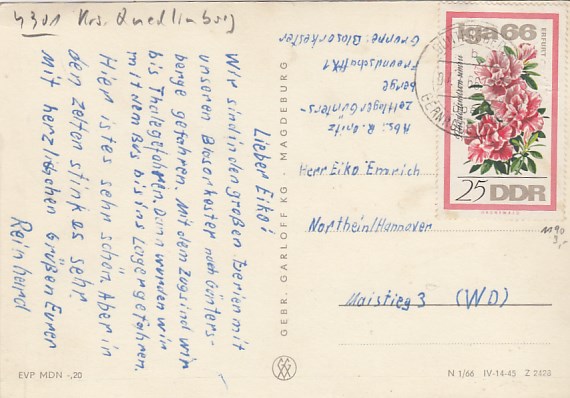 4301 Krs. Quedlinburg
Lieber Eiko!
Wir sind in den großen Ferien mit
unseren Blasorkester nach Günters-
berge gefahren. Mit den Zog sind wir
bis Thale gefahren. Dann wurden wir
mit dem Bus bis ins Lager gefahren.
Hier ist es sehr schön. Aber in
den Zelten stink es sehr.
Mit herzlichen Grüßen Euren
Reinhard
Abs. R.
Zeltlager Günters-
berge
Freundschaft 1
Gruppe: Blasorkester
GEBR. GARLOFF KG · MAGDEBURG
iga 66
ERFURT
25 DDR
Herrn Eiko Emrich
Northein/Hannover
Maistieg 3 (WD)
1190
3,-
EVP MDN -,20
N 1/66 IV-14-45 Z 2828